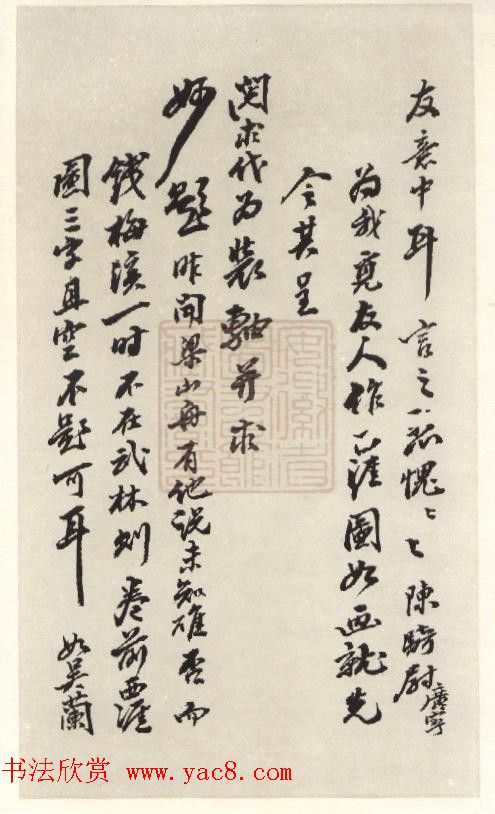 友意中耳言之一孤愧〻〻陳騎尉廣寧
为我覔友人作西涯圖如画就先
令其呈
閱求代为裝軸并求
妙題昨聞梁山舟有他説未知確否而
錢梅溪一时不在武林则卷前西涯
圖三字且空不題可耳 如吴蘭
书法欣赏 www.yac8.com